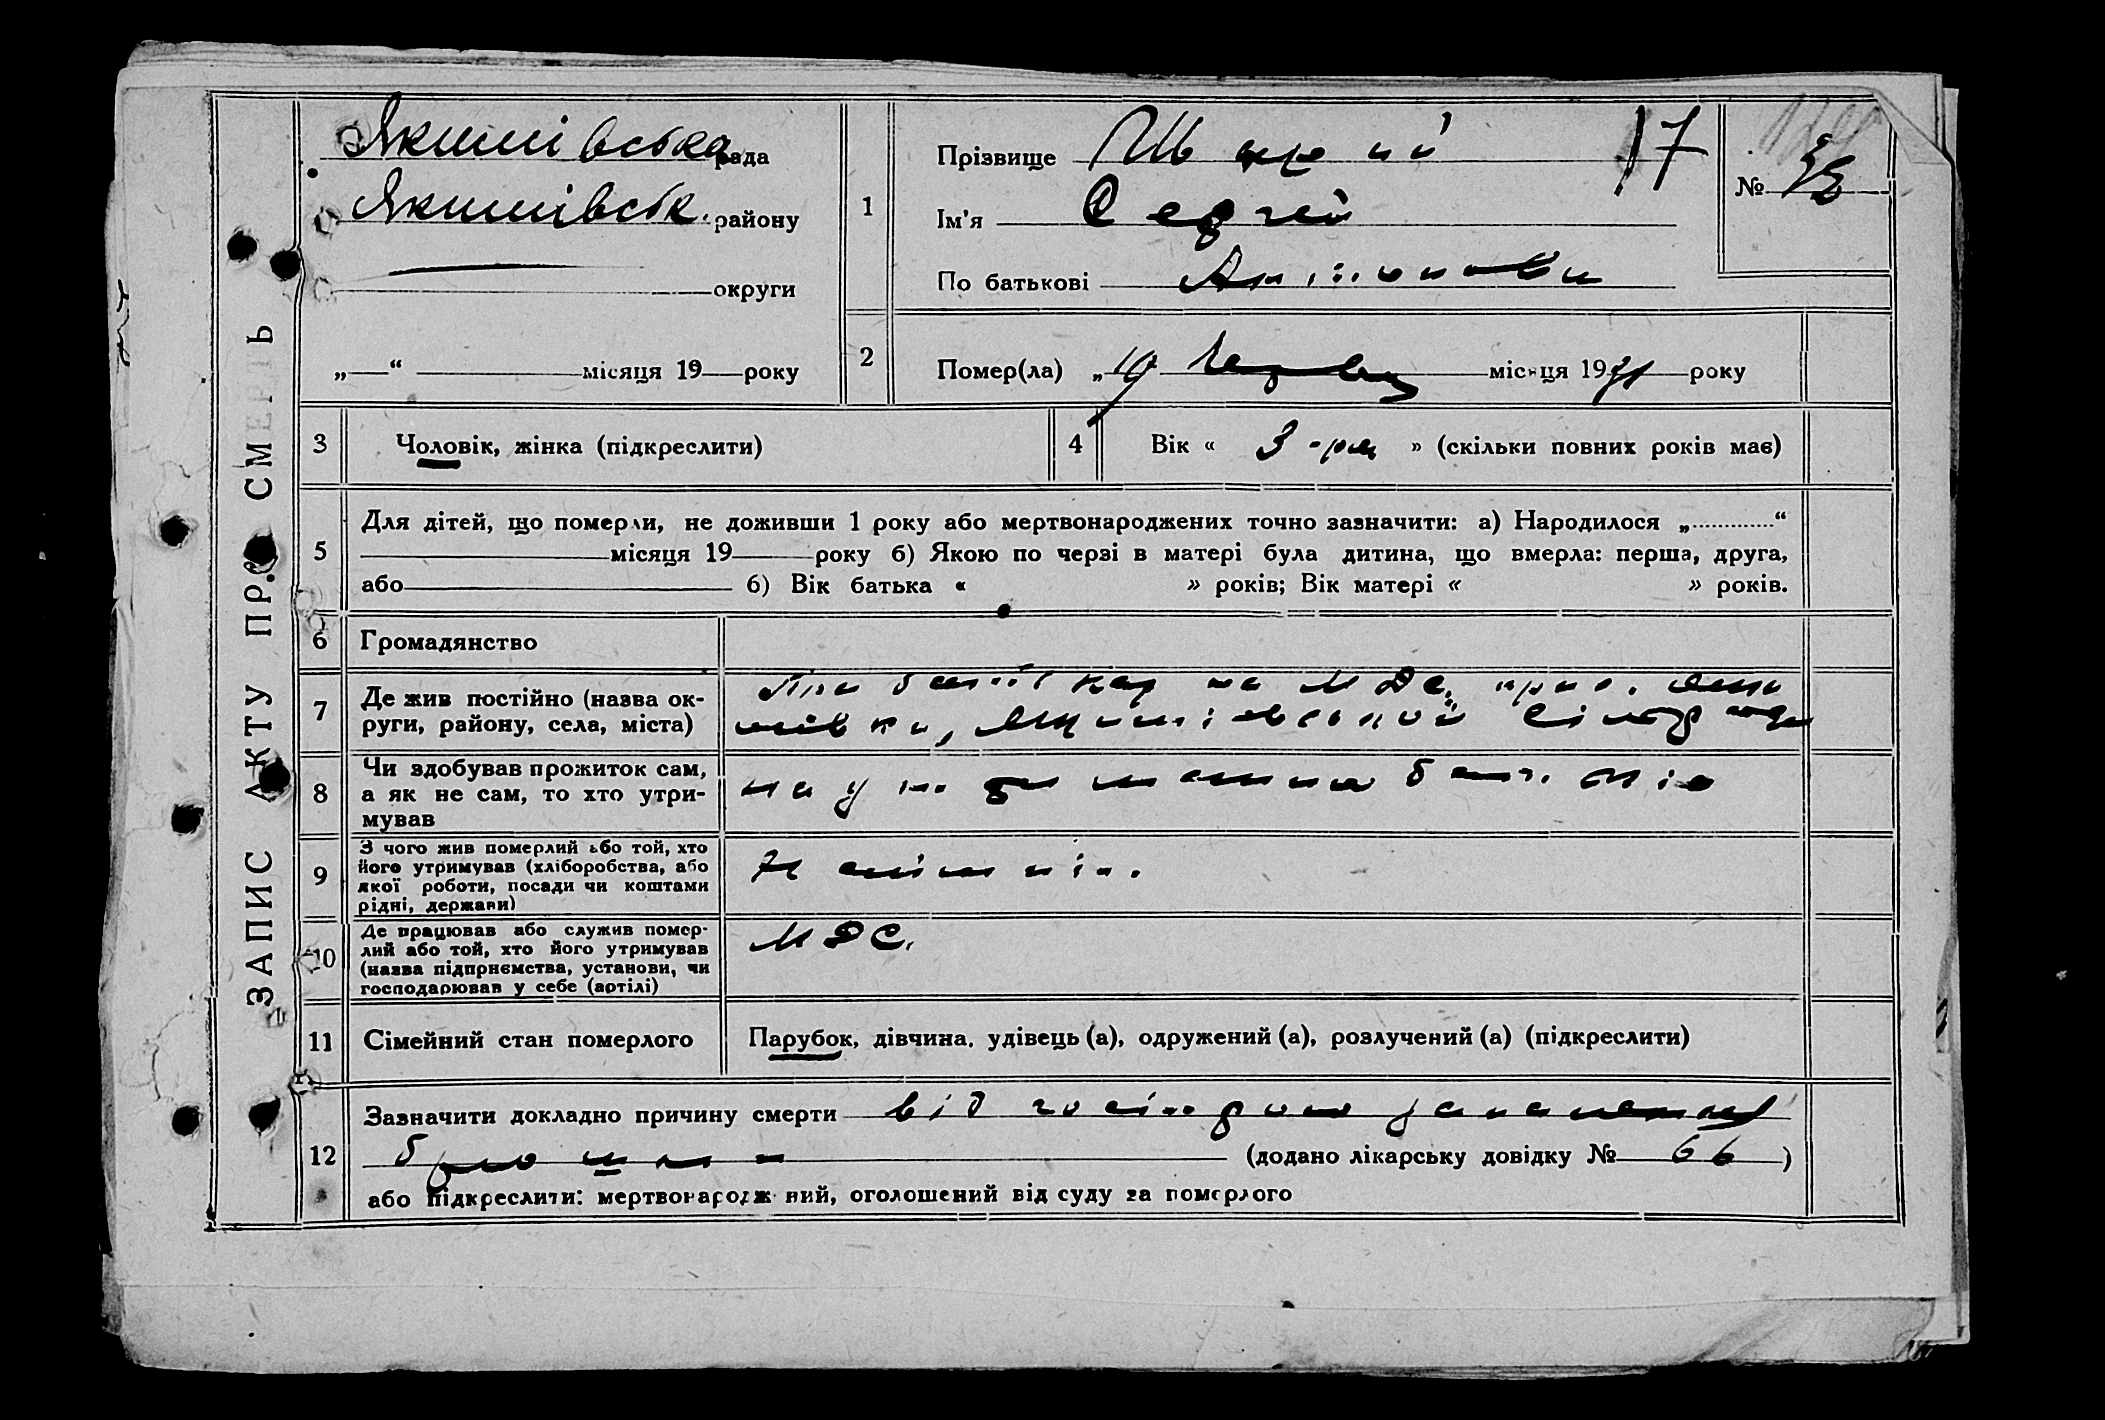 ЗАПИС АКТУ ПРО СМЕРТЬ
Якимівська рада
Якимівськ. району
округи
„ “ місяця 19 року
1
Прізвище 17
Ім'я Сергей
По батькові
№
2
Помер(ла) „19 червня місяця 1931 року
3 Чоловік, жінка (підкреслити)
4 Вік « 3-ри » (скільки повних років має)
5
Для дітей, що померли, не доживши 1 року або мертвонароджених точно зазначити: а) Народилося „ “
місяця 19 року б) Якою по черзі в матері була дитина, що вмерла: перша, друга,
або б) Вік батька « » років; Вік матері « » років.
6 Громадянство
7
Де жив постійно (назва ок-
руги, району, села, міста)
При МДС,
Якимівської
8
Чи здобував прожиток сам,
а як не сам, то хто утри-
мував
на утриманні
9
З чого жив померлий або той, хто
його утримував (хліборобства, або
якої роботи, посади чи коштами
рідні, держави)
10
Де працював або служив помер-
лий або той, хто його утримував
(назва підприємства, установи, чи
господарював у себе (артілі)
МДС.
11 Сімейний стан померлого
Парубок, дівчина, удівець (а), одружений (а), розлучений (а) (підкреслити)
12
Зазначити докладно причину смерти від гострого запалення
(додано лікарську довідку № 66)
або підкреслити: мертвонароджений, оголошений від суду за померлого